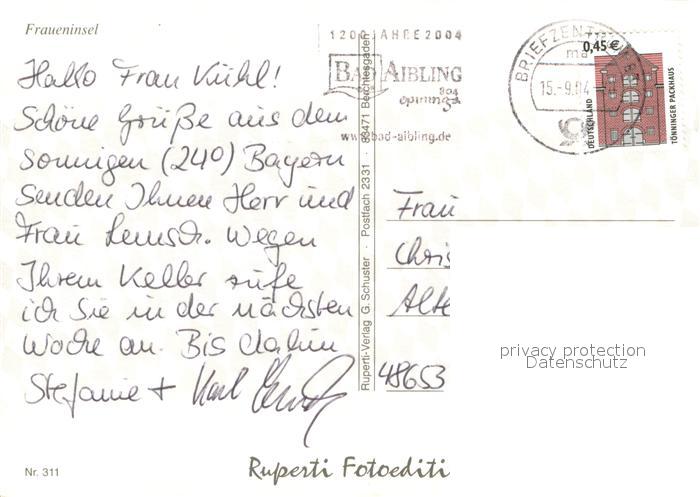 Fraueninsel
1200 JAHRE 2004
BAD AIBLING
804
epininga
www.bad-aibling.de
BRIEFZENTRUM
ma
15.-9.04
0,45 €
DEUTSCHLAND
TÖNNINGER PACKHAUS
Hallo Frau Kühl!
Schöne Grüße aus dem
sonnigen (24°) Bayern
senden Ihnen Herr und
Frau Wegen
Ihrem Keller rufe
ich Sie in der nächsten
Woche an. Bis dahin
Stefanie + Karl
Ruperti-Verlag G. Schuster · Postfach 2331 · 83471 Berchtesgaden
Frau
Chris
Alte
48653
privacy protection
Datenschutz
Nr. 311
Ruperti Fotoediti